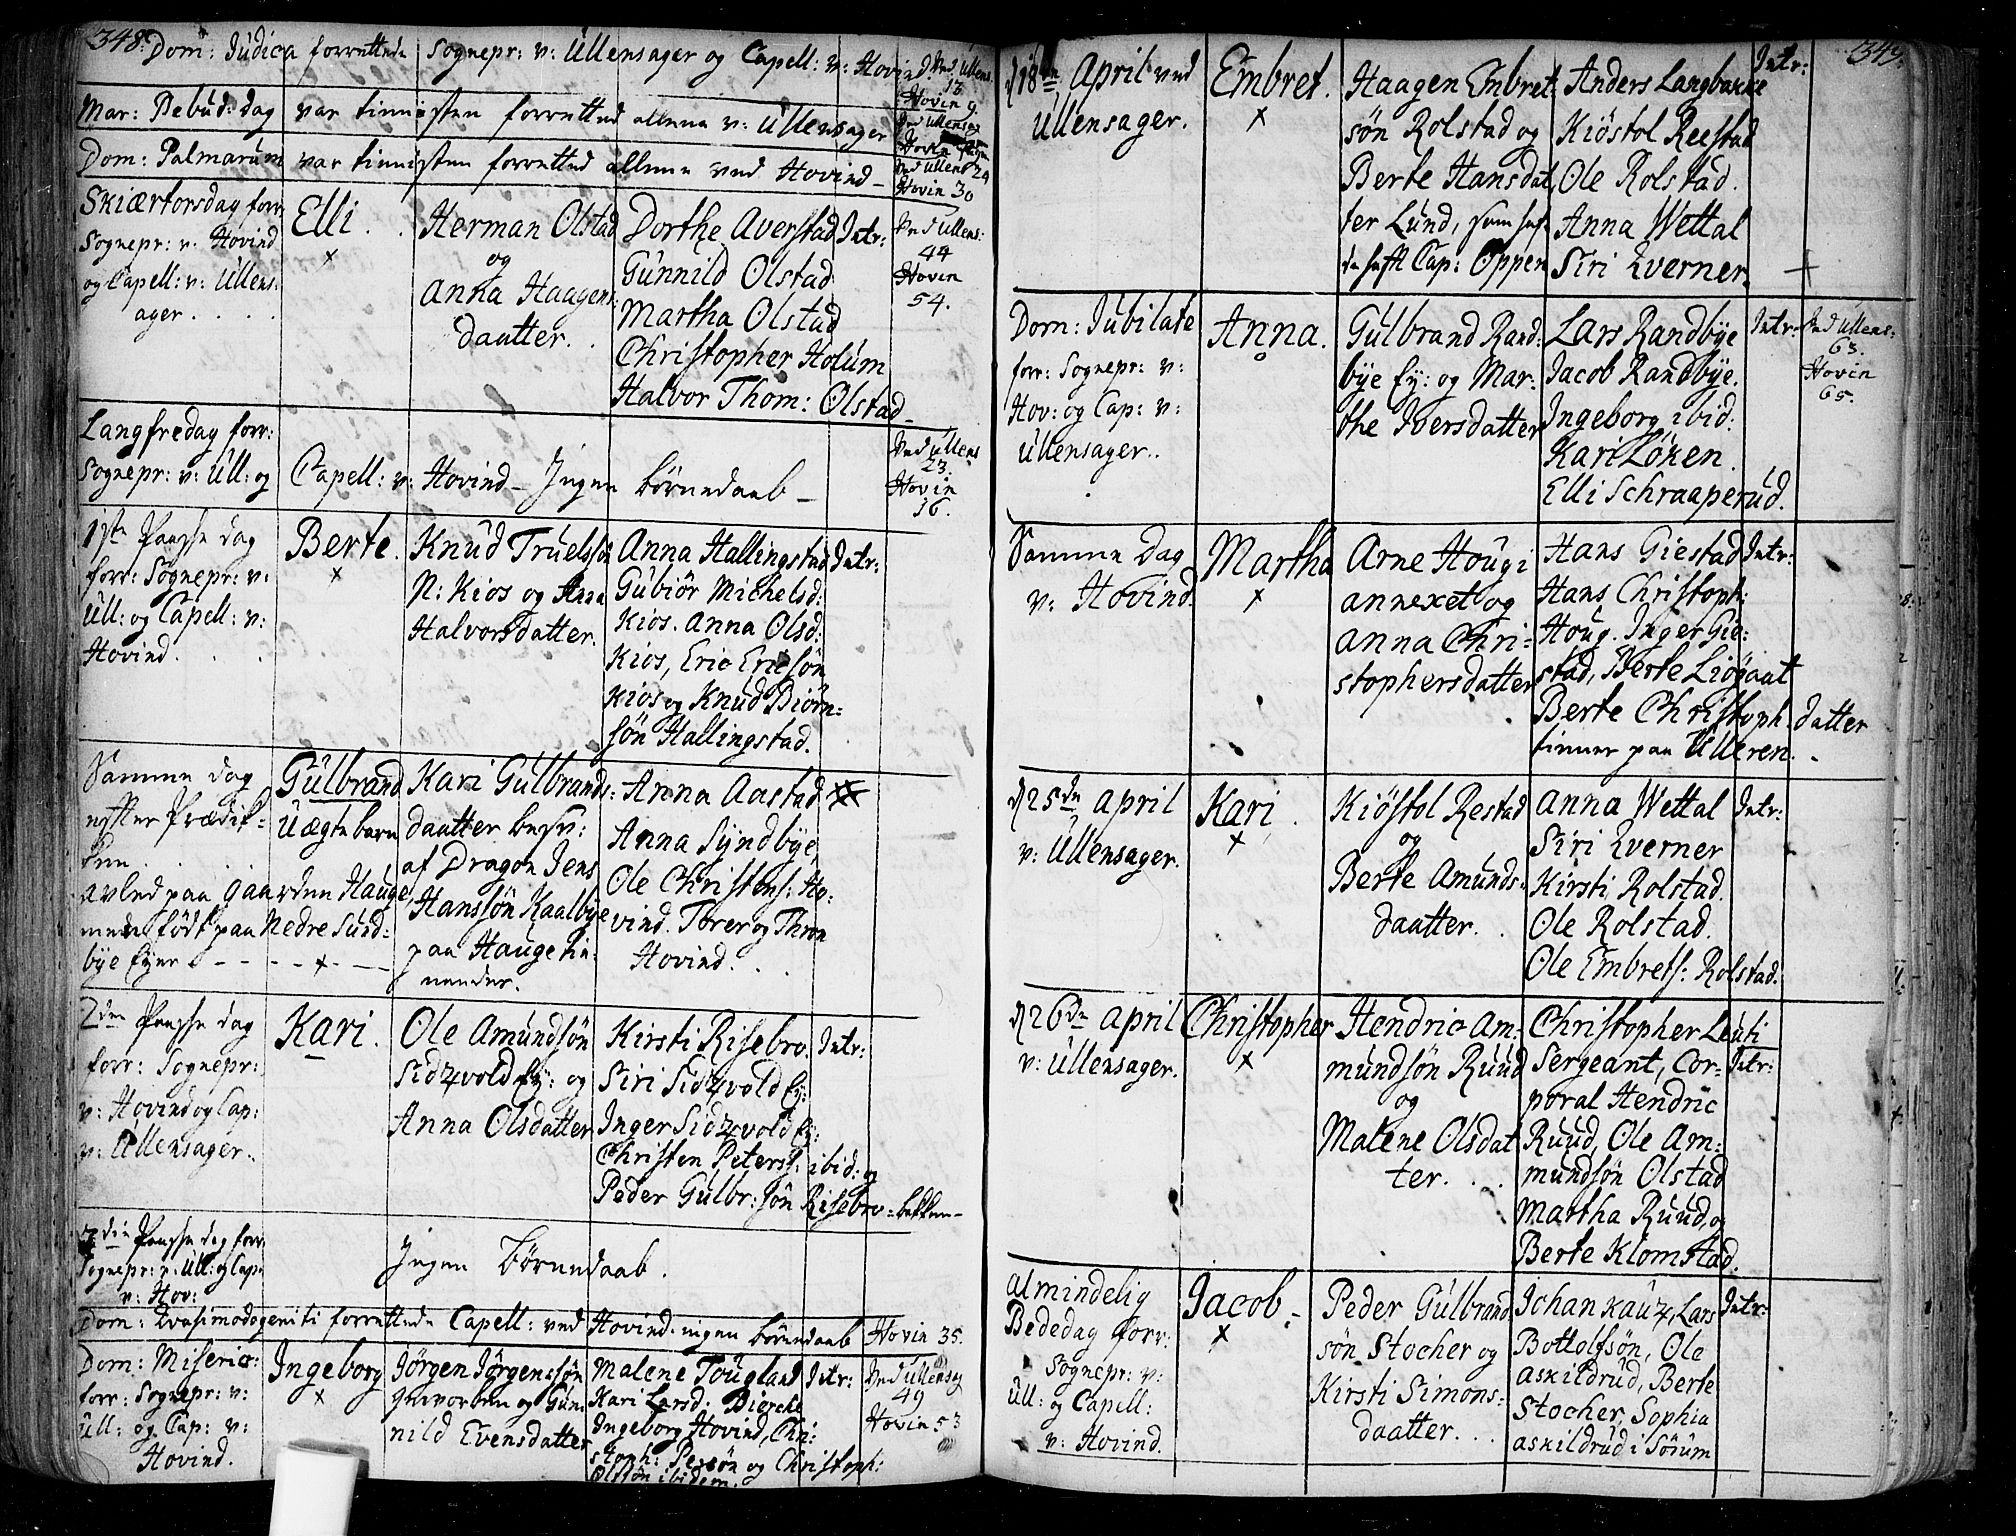 348.
Dom: Judica forrettede Sognepr: v: Ullensager og Capell: v: Hovind Ved Ullens: 13
Hovin 9
Mar: Bebud: dag var tienisten forretted allene v: Ullensager Ved Ullensag
Hovin
Dom: Palmarum var tienisten forretted allene ved Hovind - Ved Ullens 24
Hovin 30
Skiærtorsdag forr:
Sognepr: v. Hovind
og Capell: v: Ullens:
ager. . . .
Elli . .
Herman Olstad
og
Anna Haagens:
daatter. .
Dorthe Averstad
Gunnild Olstad
Martha Olstad
Christopher Holum
Halvor Thom: Olstad
Intr:
Ved Ullens:
44
Hovin
54.
Langfredag forr:
Sognepr: v: Ull: og Capell: v: Hovind - Ingen børnedaab -
Ved Ullens
23.
Hovin
16.
1ste Paaske dag
forr: Sognepr: v:
Ull: og Capell: v:
Hovind. . .
Berte.
Knud Truelssøn
N: Kios og Anna
Halvorsdatter.
Anna Hallingstad
Gubiør Michelsd:
Kios. Anna Olsd:
Kios, Eric Ericsøn
Kios og Knud Biørn=
søn Hallingstad.
Intr:
Samme dag
efter Prædik=
ken. . .
avled paa gaarden Hauge,
men født paa Nedre Sund=
bye Eyer - - - - -
Gulbrand
Uægte barn
Kari Gulbrands:
daatter besv:
af Dragon Jens
Hanssøn Kaalbye
paa Hauge tie=
nender.
Anna Aastad
Anna Syndbye,
Ole Christens: Ho:
vind. Torer og Thron
Hovind. . .
2den Paaske dag
forr: Sognepr:
v: Hovind og Cap:
v: Ullensager.
Kari.
Ole Amundsøn
Sidzvold Ey: og
Anna Olsdatter
Kirsti Risebro
Siri Sidzvold Ey:
Inger Sidzvold Ey:
Christen Peters: ibid: og
Peder Gulbr: søn Risebro=bakken-
Intr:
3die Paaske dag forr:
Sognepr: v. Ull: og Cap:
v: Hov:
Ingen Børnedaab.
Dom: Qvasimodogeniti forrettede Capell: ved Hovind: ingen børnedaab Hovin 35.
Dom: Miseric:
forr: Sognepr: v:
Ull: og Cap: v:
Hovind.
Ingeborg
Jørgen Jørgenssøn
hververben og Gun
nild Evensdatter
Malene Tougland
Kari Larsd: Diercke
Ingeborg Hovind, Chri:
stoph: Persøn og Christoph:
Olssøn ibidem.
Intr:
Ved Ullensag
49
Hovin 53
349.
d 18de April ved
Ullensager.
Embret.
Haagen Embret
søn Rolstad og
Berte Hansdat
ter Lund,
Cap: Oppen
Anders Langbakke
Kiøstol Reestad
Ole Rolstad.
Anna Wettal
Siri Qverner.
Intr:
Dom: Jubilate
forr: Sognepr: v:
Hov: og Cap: v:
Ullensager..
Anna.
Gulbrand Rand:
bye Ey: og Mar:
the Iversdatter
Lars Randbye
Jacob Randbye.
Ingeborg ibid:
Kari Løken.
Elli Schraaperud.
Intr:
Ved Ullens:
63.
Hovin
65.
Samme Dag
v: Hovind.
Martha
Arne Hougi
annexet og
Anna Chri=
stophersdatter
Hans Giestad
Hans Christoph:
Houg. Inger Gie:
stad, Berte Liøgaat
Berte Christoph. datter
tiener paa Ulleren.
Intr:
d 25de April
v: Ullensager.
Kari.
Kiøstol Restad
og
Berte Amunds=
daatter. .
Anna Wettal
Siri Qverner
Kirsti Rolstad.
Ole Rolstad.
Ole Embrets: Rolstad.
Intr:
d 26de April
v: Ullensager.
Christopher
Hendric Am:
mundsøn Ruud
og
Malene Olsdat
ter. . .
Christopher Leuti
Sergeant, Cor=
poral Hendric
Ruud, Ole Am=
mundsøn Olstad
Martha Ruud, og
Berte Klomstad.
Intr:
Almindelig
Bededag forr:
Sognepr: v:
Ull: og Capell:
v: Hovind.
Jacob.
Peder Gulbrand
søn Stocher og
Kirsti Simons=
daatter. . .
Johan Kauz, Lars
Bottolfsøn, Ole
Askildrud, Berte
Stocher, Sophia
Askildrud i Sørum
Intr: